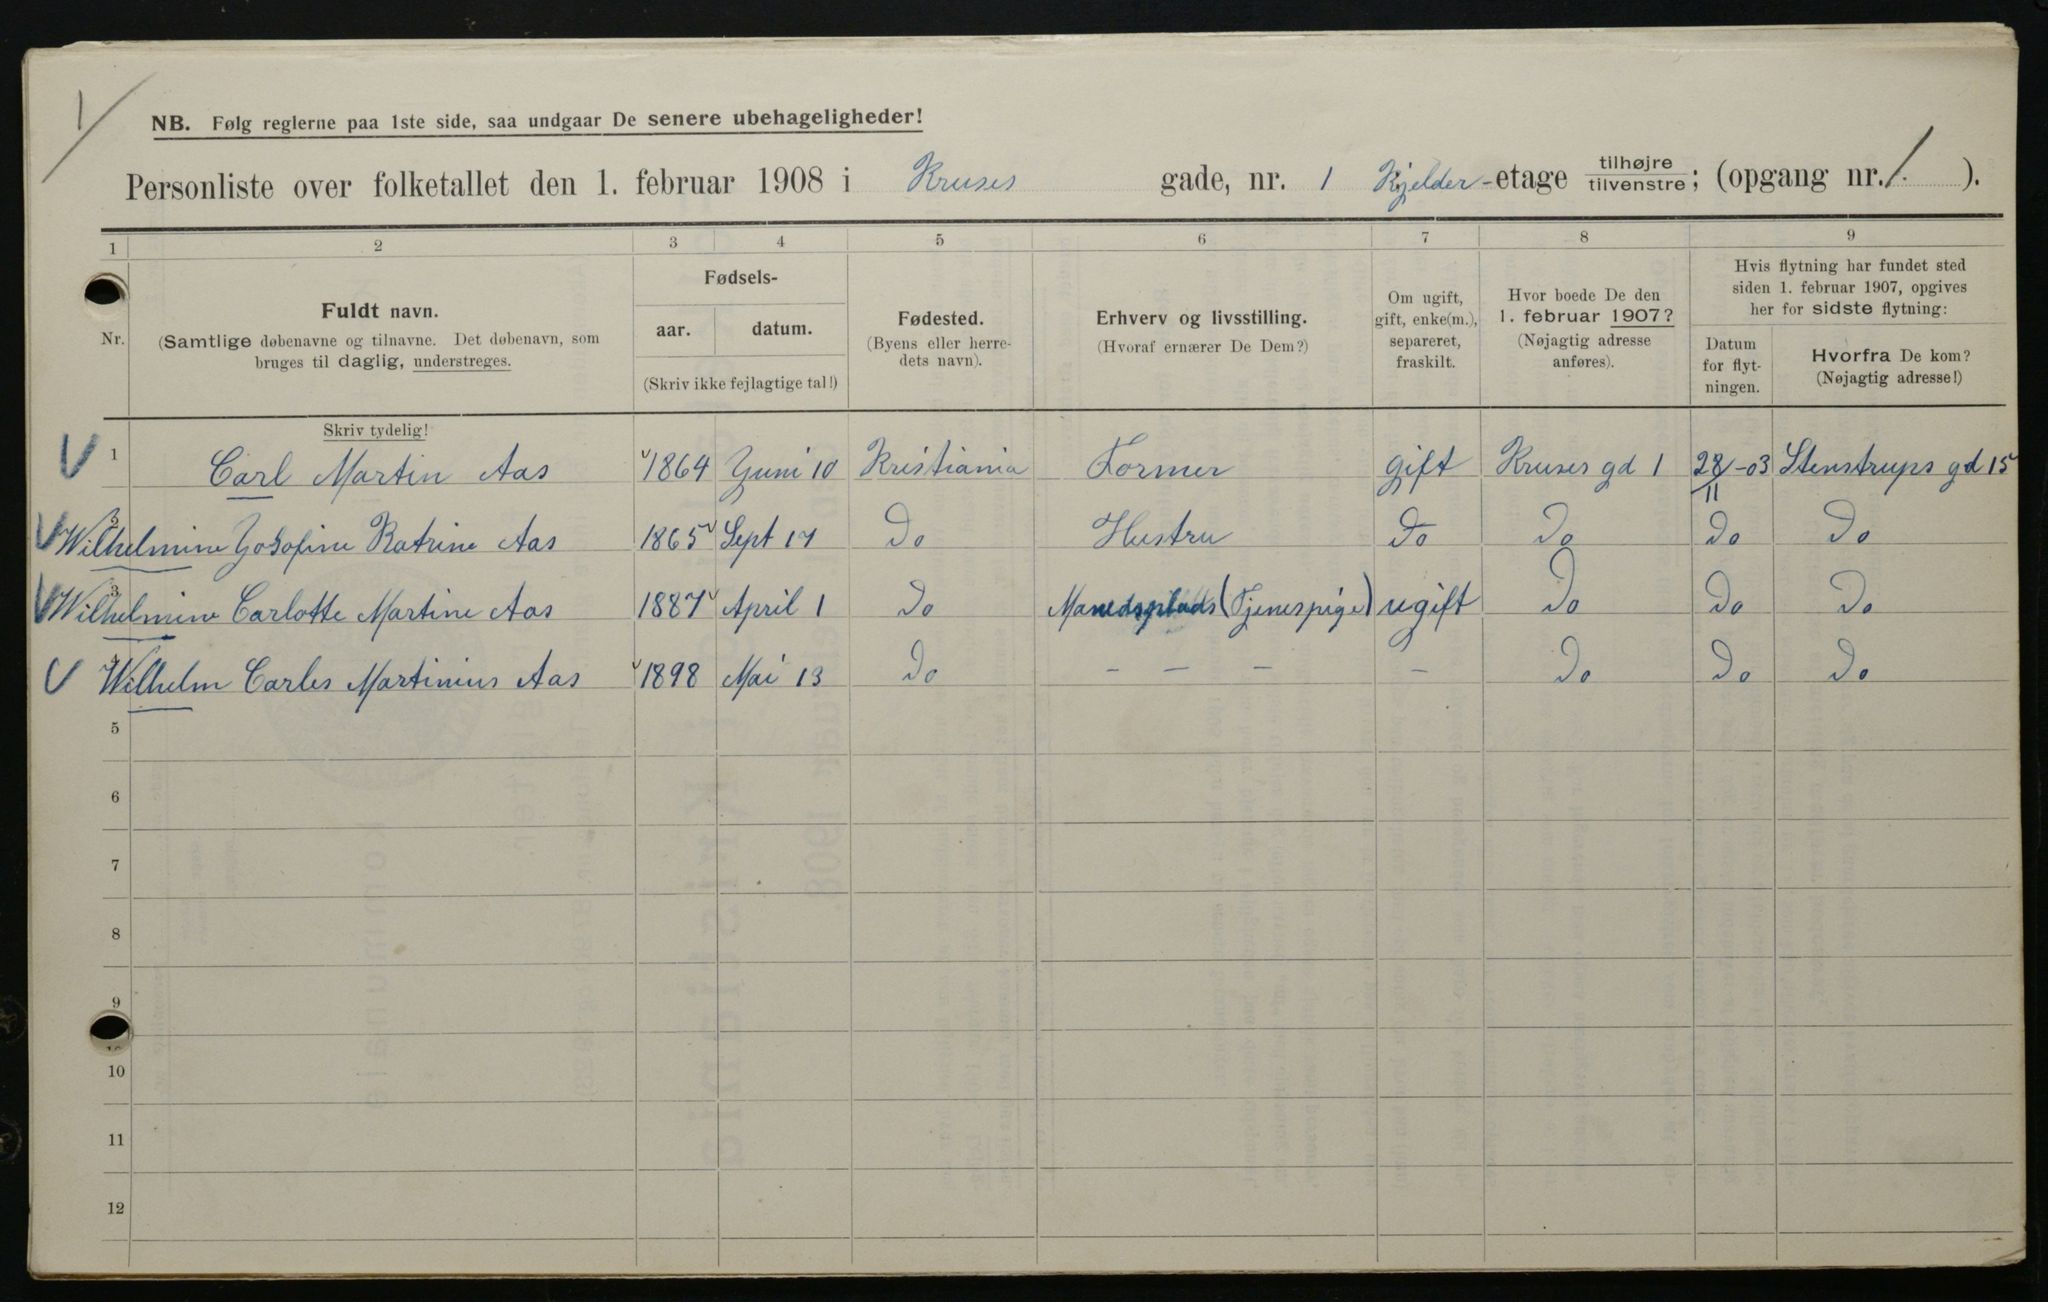 1
NB. Følg reglerne paa 1ste side, saa undgaar De senere ubehageligheder!
Personliste over folketallet den 1. februar 1908 i Kruses gade, nr. 1 Kjelder-etage tilhøjre tilvenstre; (opgang nr. 1. ).
1 2 3 4 5 6 7 8 9
Nr.
Fuldt navn.
(Samtlige døbenavne og tilnavne. Det døbenavn, som
bruges til daglig, understreges.
Fødsels-
aar. datum.
(Skriv ikke fejlagtige tal!)
Fødested.
(Byens eller herre-
dets navn).
Erhverv og livsstilling.
(Hvoraf ernærer De Dem?)
Om ugift,
gift, enke(m.),
separeret,
fraskilt.
Hvor boede De den
1. februar 1907?
(Nøjagtig adresse
anføres).
Hvis flytning har fundet sted
siden 1. februar 1907, opgives
her for sidste flytning:
Datum
for flyt-
ningen.
Hvorfra De kom?
(Nøjagtig adresse!)
Skriv tydelig!
1 Carl Martin Aas 1864 Juni 10 Kristiania Former gift Kruses gd 1 28/11-03 Stenstrups gd 15
2 Wilhelmine Josofine Katrine Aas 1865 Sept 17 Do Hustru Do Do Do Do
3 Wilhelmine Carlotte Martine Aas 1887 April 1 Do Manedsplads (Tjenespige) ugift Do Do Do
4 Wilhelm Carles Martinius Aas 1898 Mai 13 Do - - - - Do Do Do
5
6
7
8
9
10
11
12